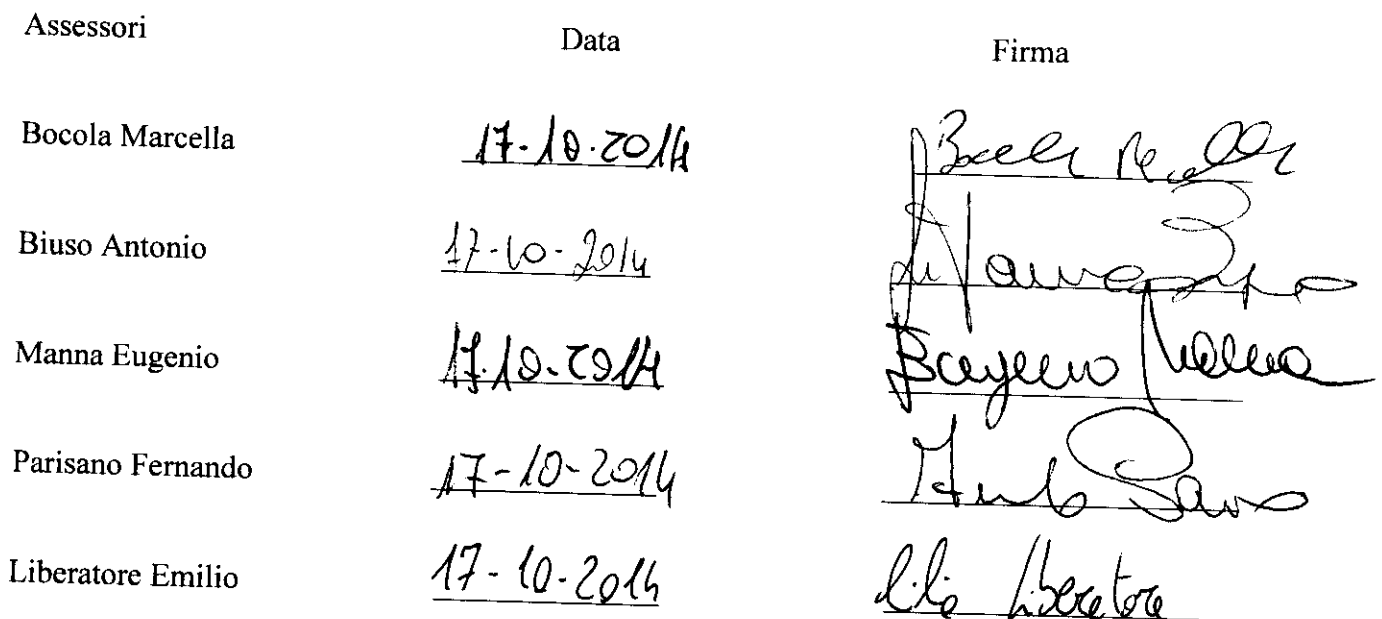 Assessori Data Firma
Bocola Marcella 17-10-2014
Biuso Antonio 17-10-2014
Manna Eugenio 17.10.2014 Eugenio Manna
Parisano Fernando 17-10-2014
Liberatore Emilio 17-10-2014 Liberatore